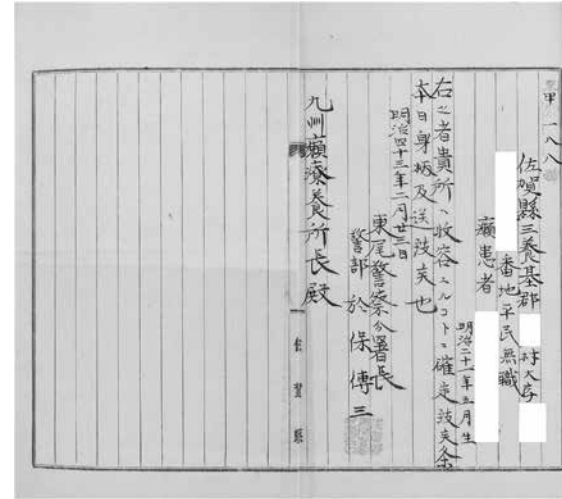 甲一八八
佐賀縣三養基郡 村大字
番地平民無職
癩患者
明治二十一年五月生
右之者貴所ヘ收容スルコトニ確定致候条
本日身柄及送致候也
明治四十三年二月廿三日
東尾警察分署長
警部 於保傳三
九州癩療養所長殿
佐賀縣